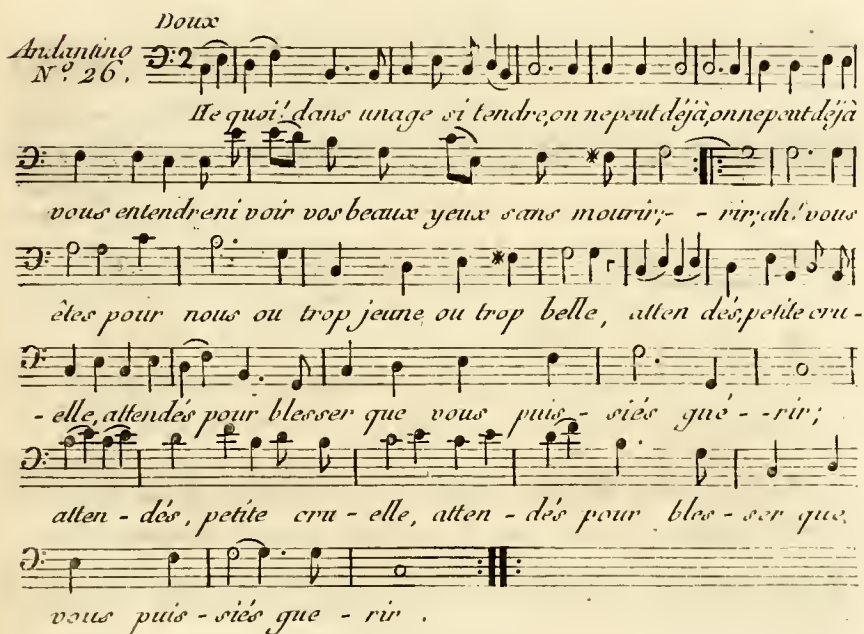 Doux
Andantino
Nº. 26.
2
He quoi! dans unage si tendre, on ne peut déjà, on ne peut déjà
vous entendre ni voir vos beaux yeux sans mourir; - - rir; ah! vous
êtes pour nous ou trop jeune, ou trop belle, atten dés, petite cru-
- elle, attendés pour blesser que vous puis - siés gué - - rir;
atten - dés, petite cru - elle, atten - dés pour bles - ser que
vous puis - siés gue - rir .